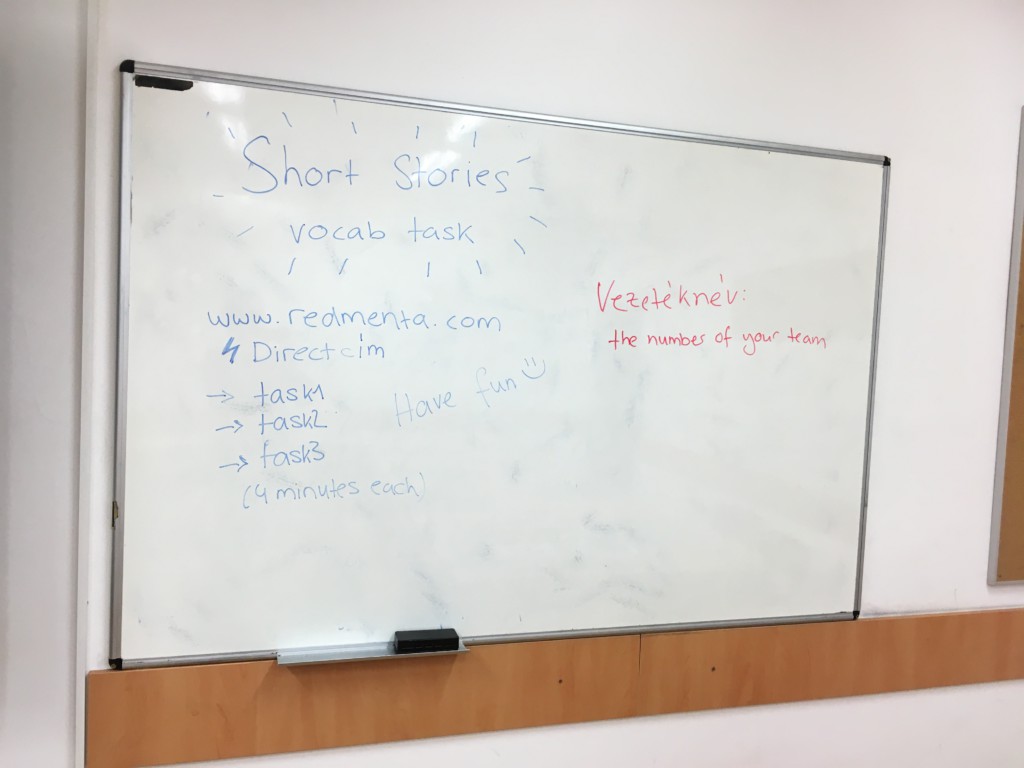 Short Stories
vocab task
www.redmenta.com
Directcím
→ task1
→ task2
→ task3
(4 minutes each)
Have fun :)
Vezetéknév:
the number of your team